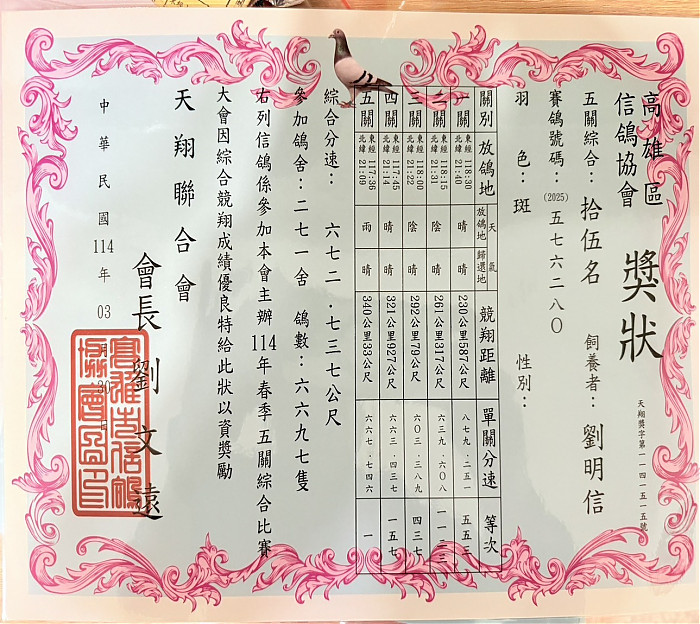 高雄區
信鴿協會
獎狀
天翔獎字第一一四一五一五號
五關綜合：拾伍名 飼養者：劉明信
賽鴿號碼：(2025)五七六二八〇
羽色：斑 性別：
關別 放鴿地 天氣 放鴿地 歸還地 競翔距離 單關分速 等次
一關 東經 118:30 北緯 21:40 晴 晴 230公里587公尺 八七九．二五一 五五三
二關 東經 118:15 北緯 21:31 陰 晴 261公里317公尺 六三九．六〇八 一一三三
三關 東經 118:00 北緯 21:22 陰 晴 292公里79公尺 六〇三．三八九 四三七
四關 東經 117:45 北緯 21:14 晴 晴 321公里927公尺 六六三．四三七 一五七
五關 東經 117:36 北緯 21:09 雨 晴 340公里33公尺 六六七．七四六 一
綜合分速：六七二．七三七公尺
參加鴿舍：二七一舍 鴿數：六六九七隻
右列信鴿係參加本會主辦114年春季五關綜合比賽
大會因綜合競翔成績優良特給此狀以資獎勵
天翔聯合會
會長劉文遠
中華民國114年03月30日